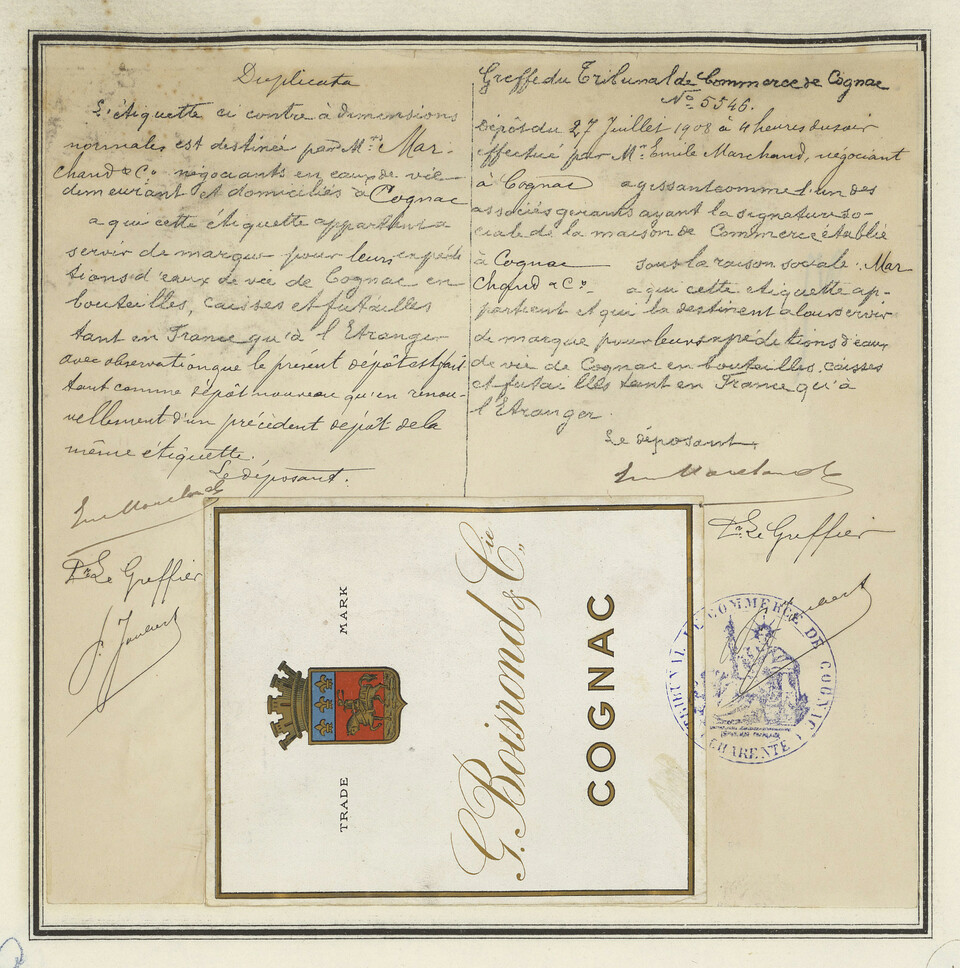 Duplicata
L'étiquette ci contre à dimensions
normales est destinée par Mrs Mar-
chand & Co négociants en eaux de vie
demeurant et domiciliés à Cognac
a qui cette étiquette appartient a
servir de marque pour leurs expédi
tions d'eaux de vie de Cognac en
bouteilles, caisses et futailles
tant en France qu'à l'Etranger
avec observation que le présent dépôt est fait
tant comme dépôt nouveau qu'en renou-
vellement d'un précédent dépôt de la
même étiquette.
Le déposant.
Em Marchand
Pr Le Greffier
J. Joubert
Greffe du Tribunal de Commerce de Cognac
No 5546.
Dépôt du 27 Juillet 1908 à 4 heures du soir
effectué par Mr Emile Marchand, négociant
à Cognac agissant comme l'un des
associés gérants ayant la signature so-
ciale de la maison de Commerce établie
à Cognac sous la raison sociale. Mar
chand & Co a qui cette étiquette ap-
partient et qui la destinent a leur servir
de marque pour leurs expéditions d'eaux
de vie de Cognac en bouteilles, caisses
et futailles tant en France qu'à
l'Etranger.
Le déposant,
Em Marchand
Pr Le Greffier
Joubert
TRIBUNAL DE COMMERCE DE COGNAC
(CHARENTE)
TRADE MARK
G. Boisrond & Cie
COGNAC